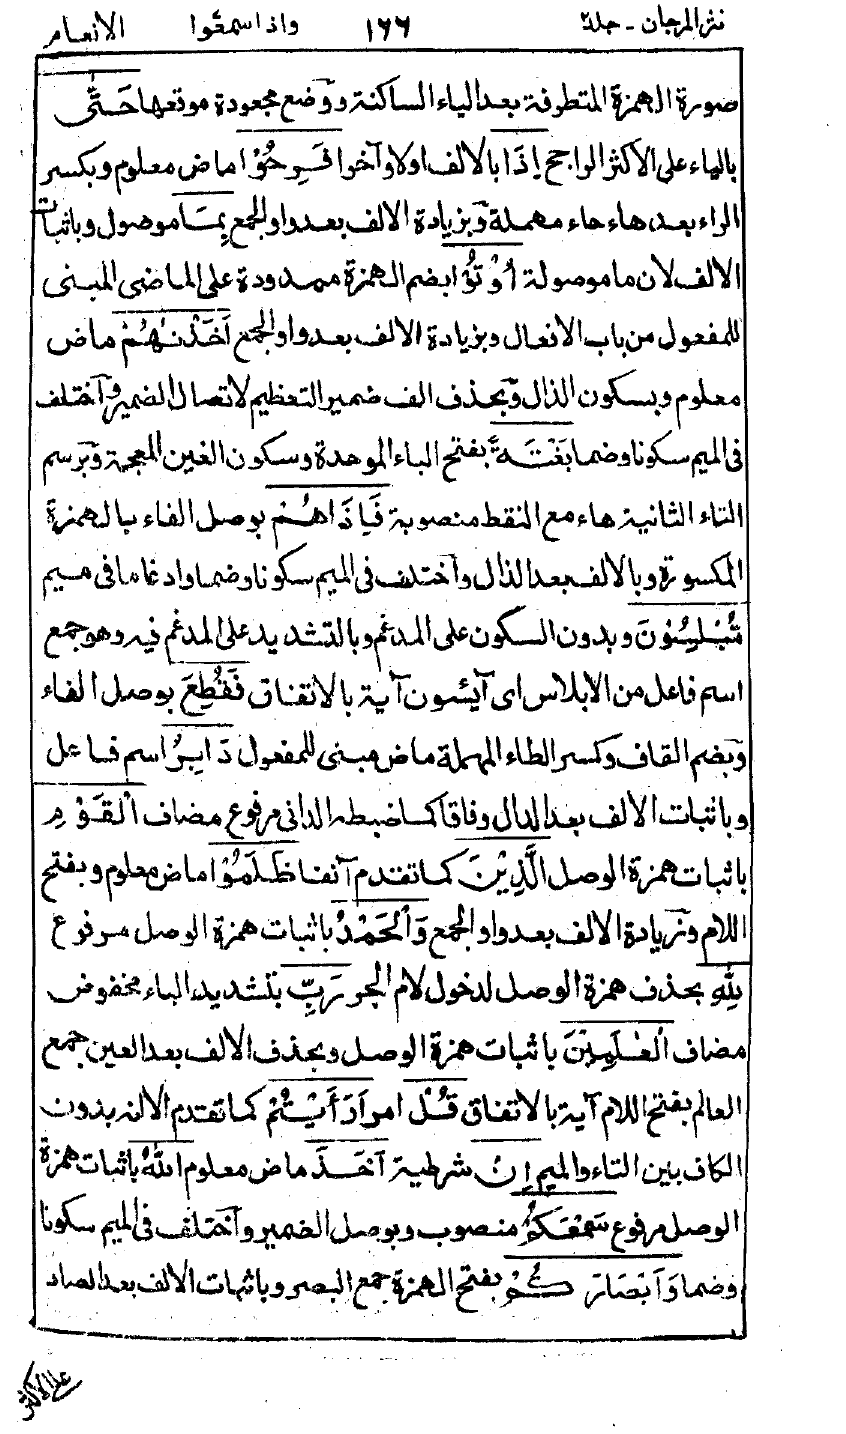 نثر المرجان - جلد٢ ١٦٦ واذا سمعوا الانعام
صورة الهمزة المتطرفة بعد الياء الساكنة ووضع مجعودة موقعها حَتّٰى
بالياء على الاكثر الراجح إِذَا بالالف اولا وآخرا فَرِحُوْا ماض معلوم وبكسر
الراء بعدها حاء مهملة وبزيادة الالف بعد واو الجمع بِمَا موصول وباثبات
الالف لان ما موصولة أُوْتُوْا بضم الهمزة ممدودة على الماضى المبنى
للمفعول من باب الافعال وبزيادة الالف بعد واو الجمع أَخَذْنٰهُمْ ماض
معلوم وبسكون الذال وبحذف الف ضمير التعظيم لاتصال الضمير واختلف
فى الميم سكونا وضما بَغْتَةً بفتح الباء الموحدة وسكون الغين المعجمة وبرسم
التاء الثانية هاء مع النقط منصوبة فَإِذَا هُمْ بوصل الفاء بالهمزة
المكسورة وبالالف بعد الذال واختلف فى الميم سكونا وضما وادغاما فى ميم
مُّبْلِسُوْنَ وبدون السكون على المدغم وبالتشديد على المدغم فيه وهو جمع
اسم فاعل من الابلاس اى آيئسون آية بالاتفاق فَقُطِعَ بوصل الفاء
وبضم القاف وكسر الطاء المهملة ماض مبنى للمفعول دَابِرُ اسم فاعل
وباثبات الالف بعد الدال وفاقا كما ضبطه الدانى مرفوع مضاف الْقَوْمِ
باثبات همزة الوصل الَّذِيْنَ كما تقدم آنفا ظَلَمُوْا ماض معلوم وبفتح
اللام وبزيادة الالف بعد واو الجمع وَالْحَمْدُ باثبات همزة الوصل مرفوع
لِلّٰهِ بحذف همزة الوصل لدخول لام الجر رَبِّ بتشديد الباء مخفوض
مضاف الْعٰلَمِيْنَ باثبات همزة الوصل وبحذف الالف بعد العين جمع
العالم بفتح اللام آية بالاتفاق قُلْ امر أَرَأَيْتُمْ كما تقدم الا انه بدون
الكاف بين التاء والميم إِنْ شرطية أَخَذَ ماض معلوم اللّٰهُ باثبات همزة
الوصل مرفوع سَمْعَكُمْ منصوب وبوصل الضمير واختلف فى الميم سكونا
وضما وَأَبْصَارَكُمْ بفتح الهمزة جمع البصر وباثبات الالف بعد الصاد
على الاكثر